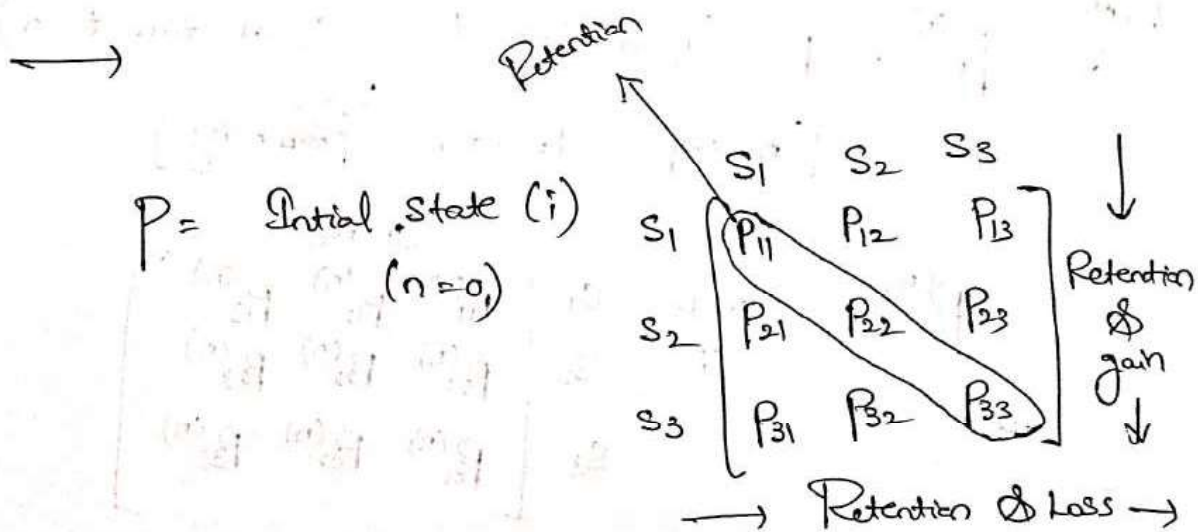 Retention
S1 S2 S3
P = Intial state (i)
(n=0,)
S1 P11 P12 P13
S2 P21 P22 P23
S3 P31 P32 P33
Retention
&
gain
Retention & Loss